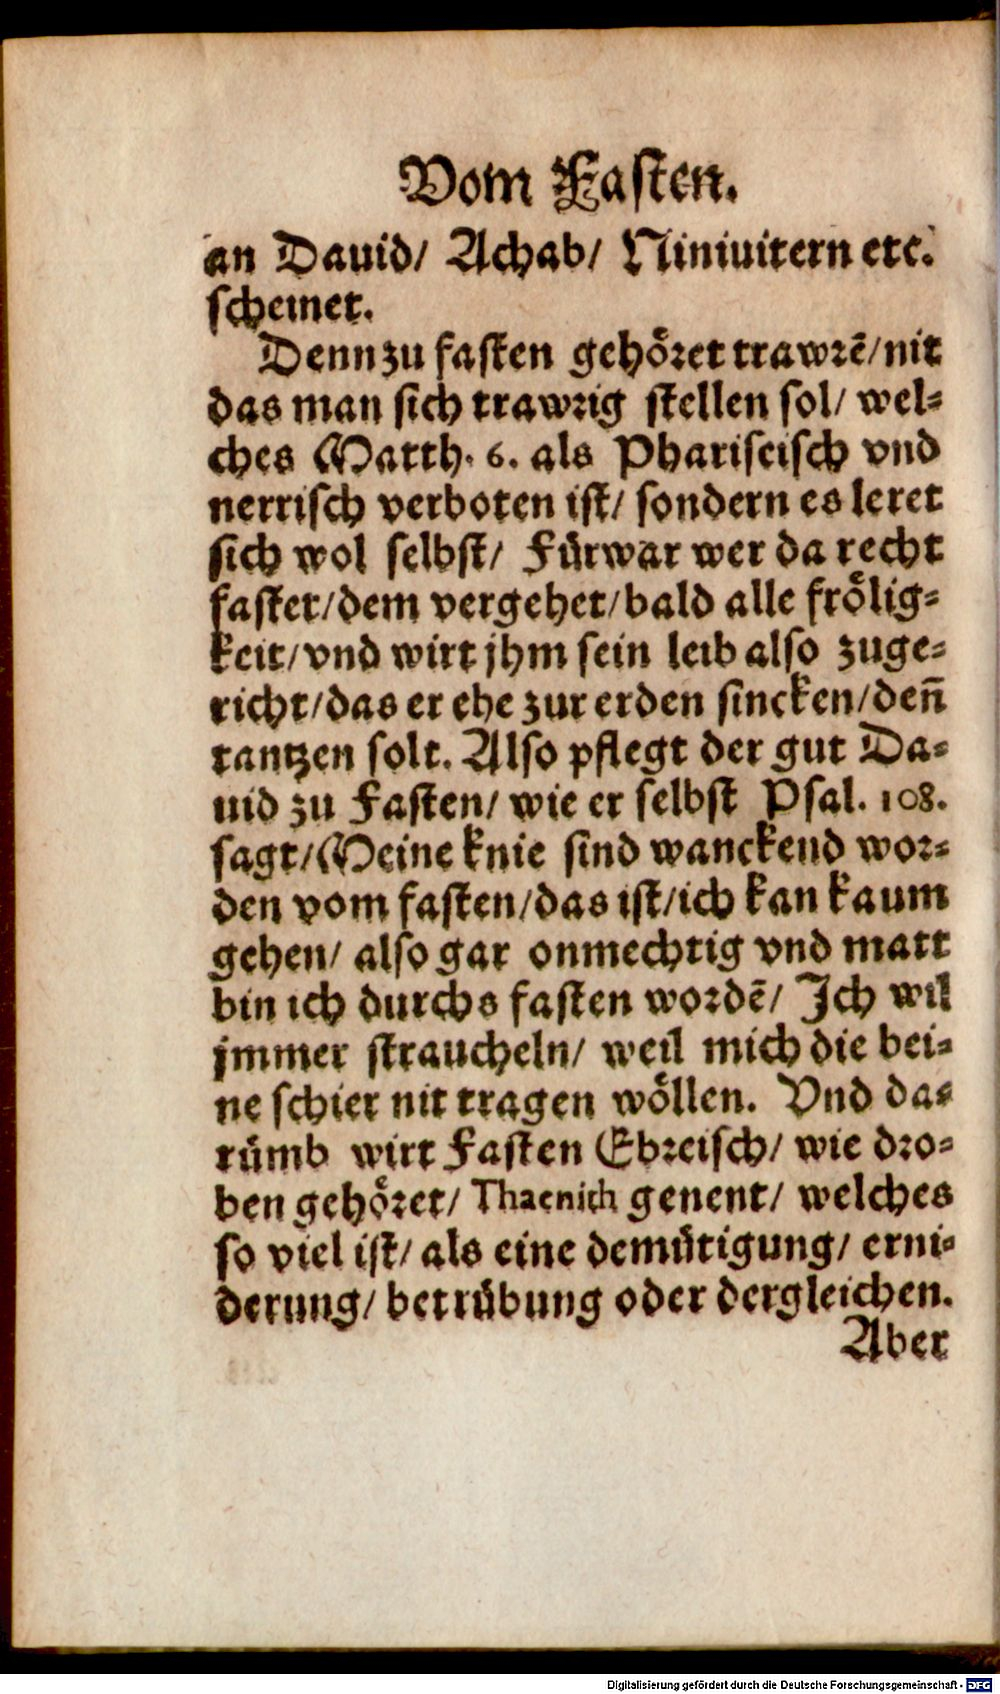 Vom Fasten.
an Dauid/ Achab/ Niniuitern etc.
scheinet.
Denn zu fasten gehöret trawrē/nit
das man sich trawrig stellen sol/ wel-
ches Matth. 6. als Phariseisch vnd
nerrisch verboten ist/ sondern es leret
sich wol selbst/ Fürwar wer da recht
fastet/dem vergehet/bald alle frölig-
keit/vnd wirt jhm sein leib also zuge-
richt/das er ehe zur erden sincken/deñ
tantzen solt. Also pflegt der gut Da-
uid zu Fasten/ wie er selbst Psal. 108.
sagt/Meine knie sind wanckend wor-
den vom fasten/das ist/ich kan kaum
gehen/ also gar onmechtig vnd matt
bin ich durchs fasten wordē/ Ich wil
jmmer straucheln/ weil mich die bei-
ne schier nit tragen wöllen. Vnd da-
rümb wirt Fasten Ebreisch/ wie dro-
ben gehöret/ Thaenith genent/ welches
so viel ist/ als eine demütigung/ erni-
derung/ betrübung oder dergleichen.
Aber
Digitalisierung gefördert durch die Deutsche Forschungsgemeinschaft - DFG